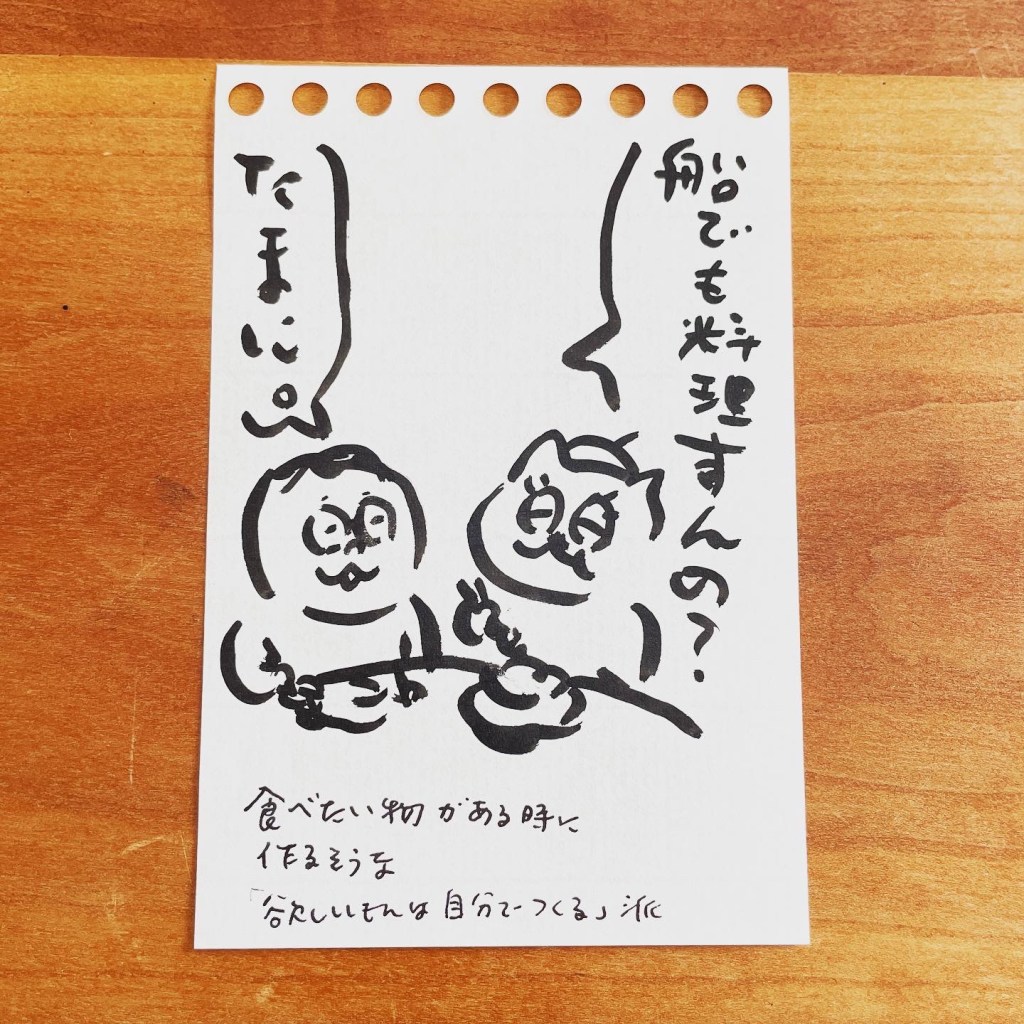 船でも料理すんの?
たまに。
食べたい物がある時に
作るそうな
「欲しいもんは自分でつくる」派